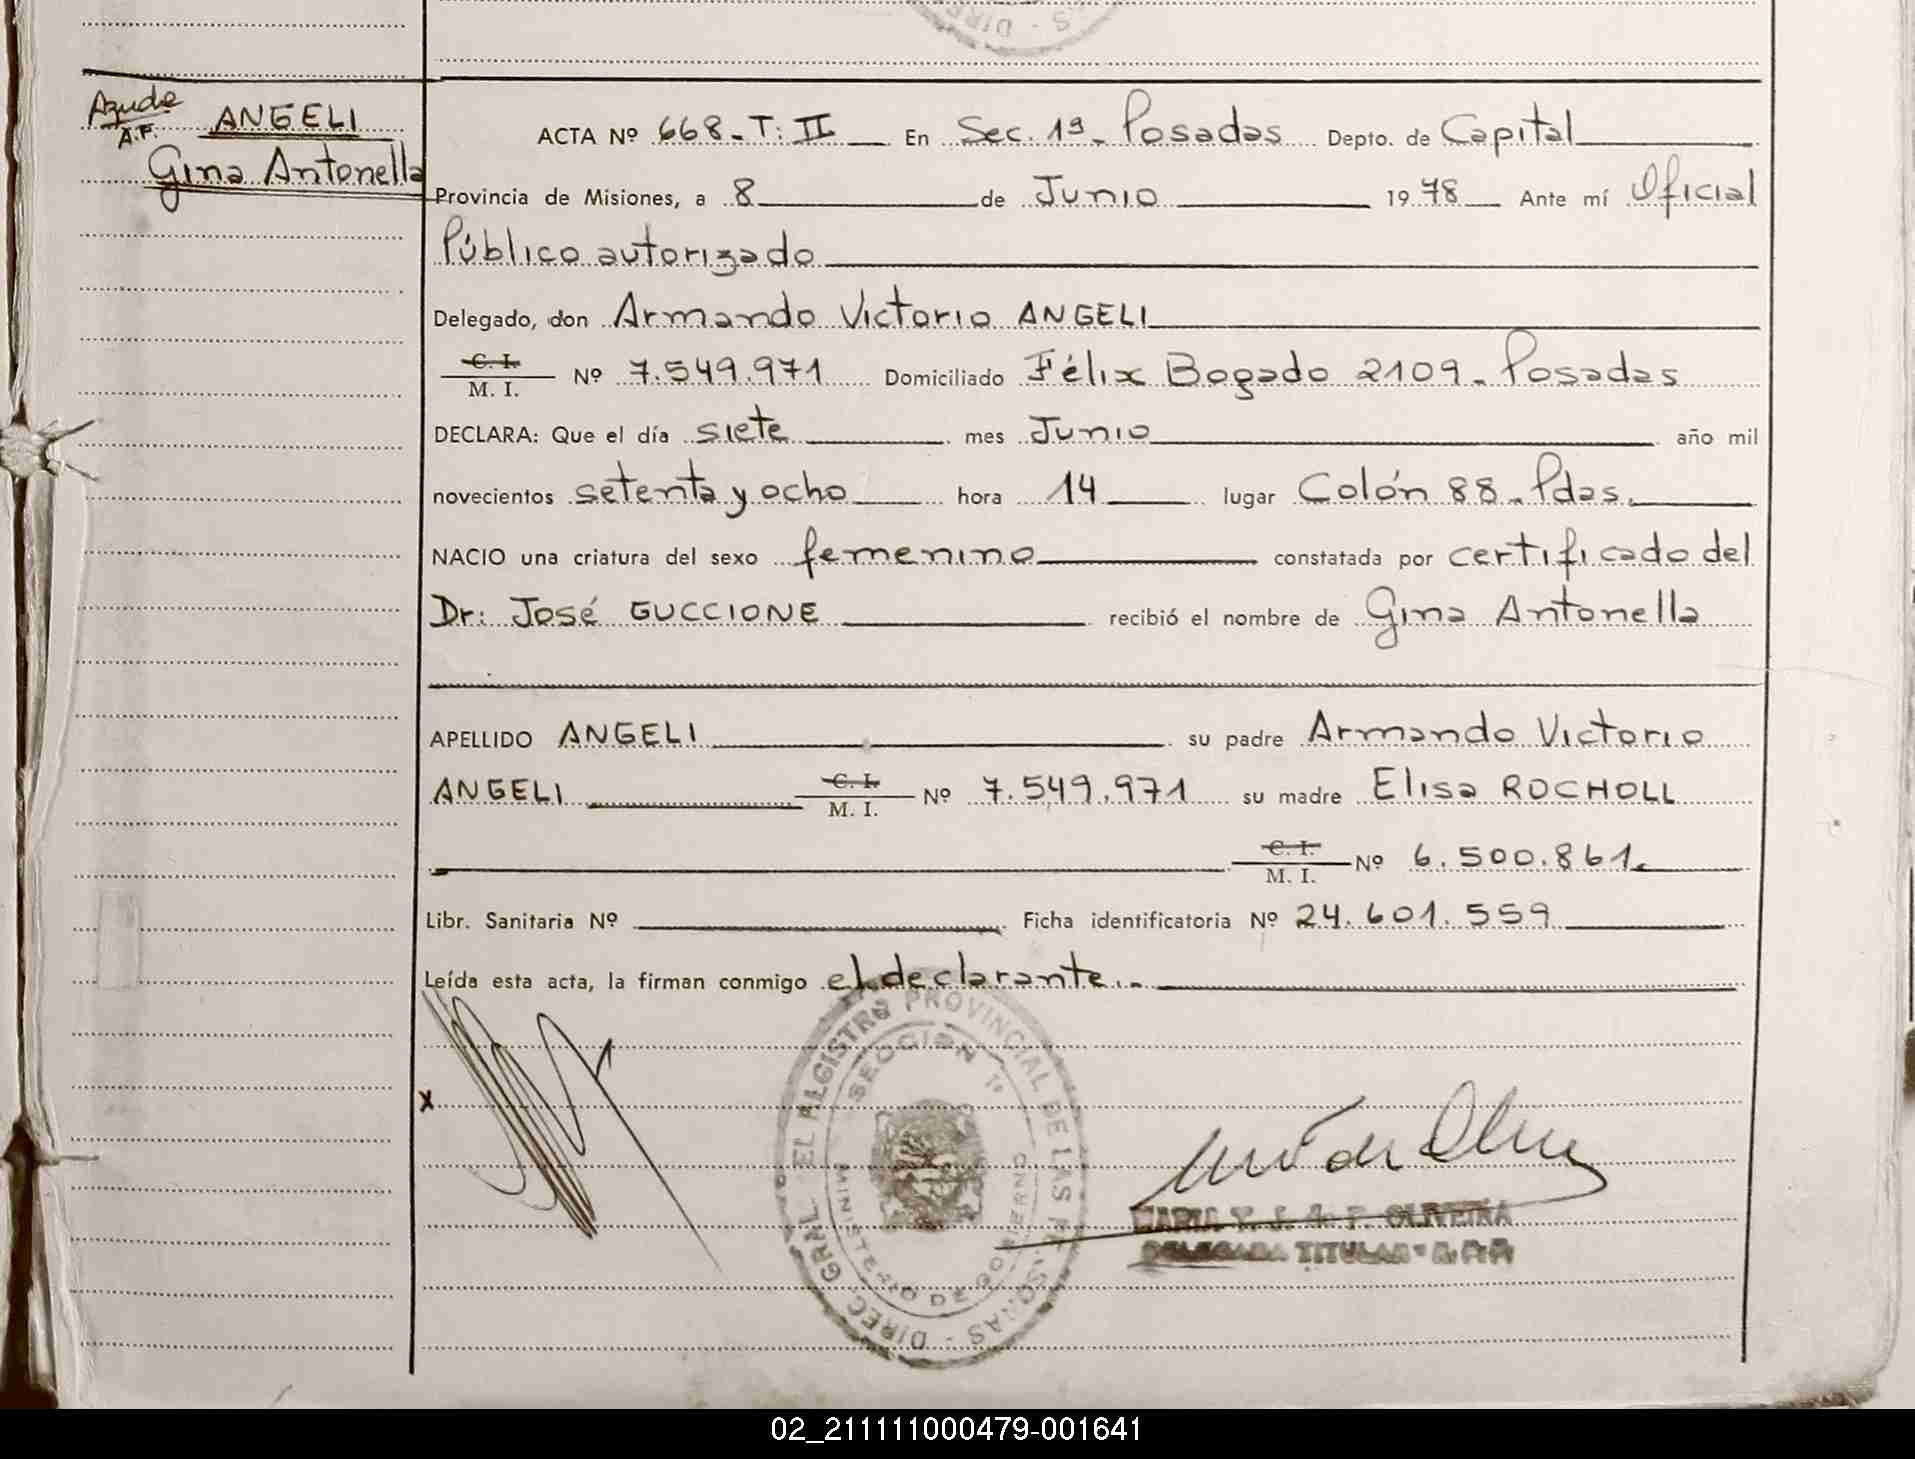 DIREC
AS
Ayuda
A.F.
ANGELI
Gina Antonella
ACTA Nº 668-T: II En Sec. 1ª - Posadas Depto. de Capital
Provincia de Misiones, a 8 de Junio 1978 Ante mí Oficial
Público autorizado
Delegado, don Armando Victorio ANGELI
C. I.
M. I. Nº 7.549.971 Domiciliado Félix Bogado 2109 - Posadas
DECLARA: Que el día siete mes Junio año mil
novecientos setenta y ocho hora 14 lugar Colón 88 - Pdas.
NACIO una criatura del sexo femenino constatada por certificado del
Dr: José GUCCIONE recibió el nombre de Gina Antonella
APELLIDO ANGELI su padre Armando Victorio
ANGELI C. I. M. I. Nº 7.549.971 su madre Elisa ROCHOLL
C. I. M. I. Nº 6.500.861.
Libr. Sanitaria Nº Ficha identificatoria Nº 24.601.559
Leída esta acta, la firman conmigo el declarante.-
x
DIREC. GRAL. REGISTRO PROVINCIAL DE LAS PERSONAS
SECCION 1ª
MINISTERIO DE GOBIERNO
MARIA T. J. de F. OLIVEIRA
DELEGADA TITULAR
02_211111000479-001641